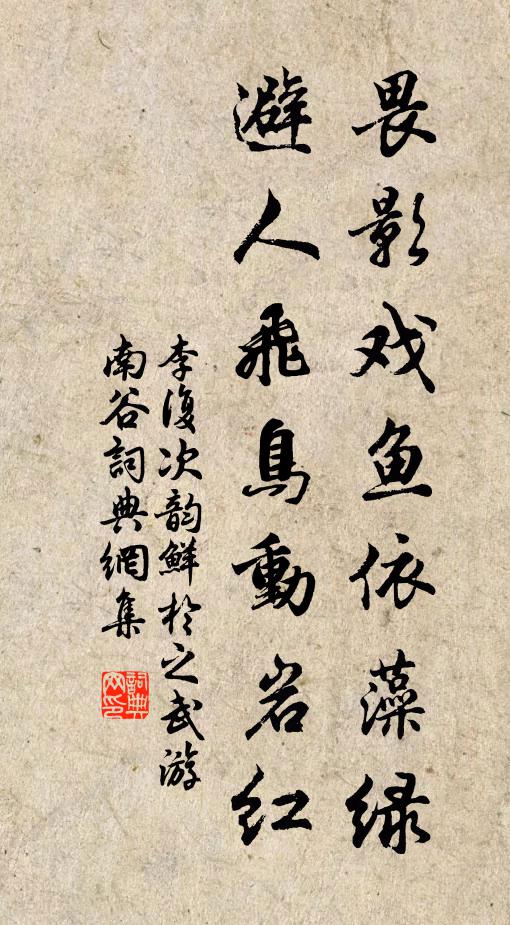 畏影戏鱼依藻绿
避人飛鳥動岩红
李復次韵鮮於之武游
南谷詞典網集
詞典网印